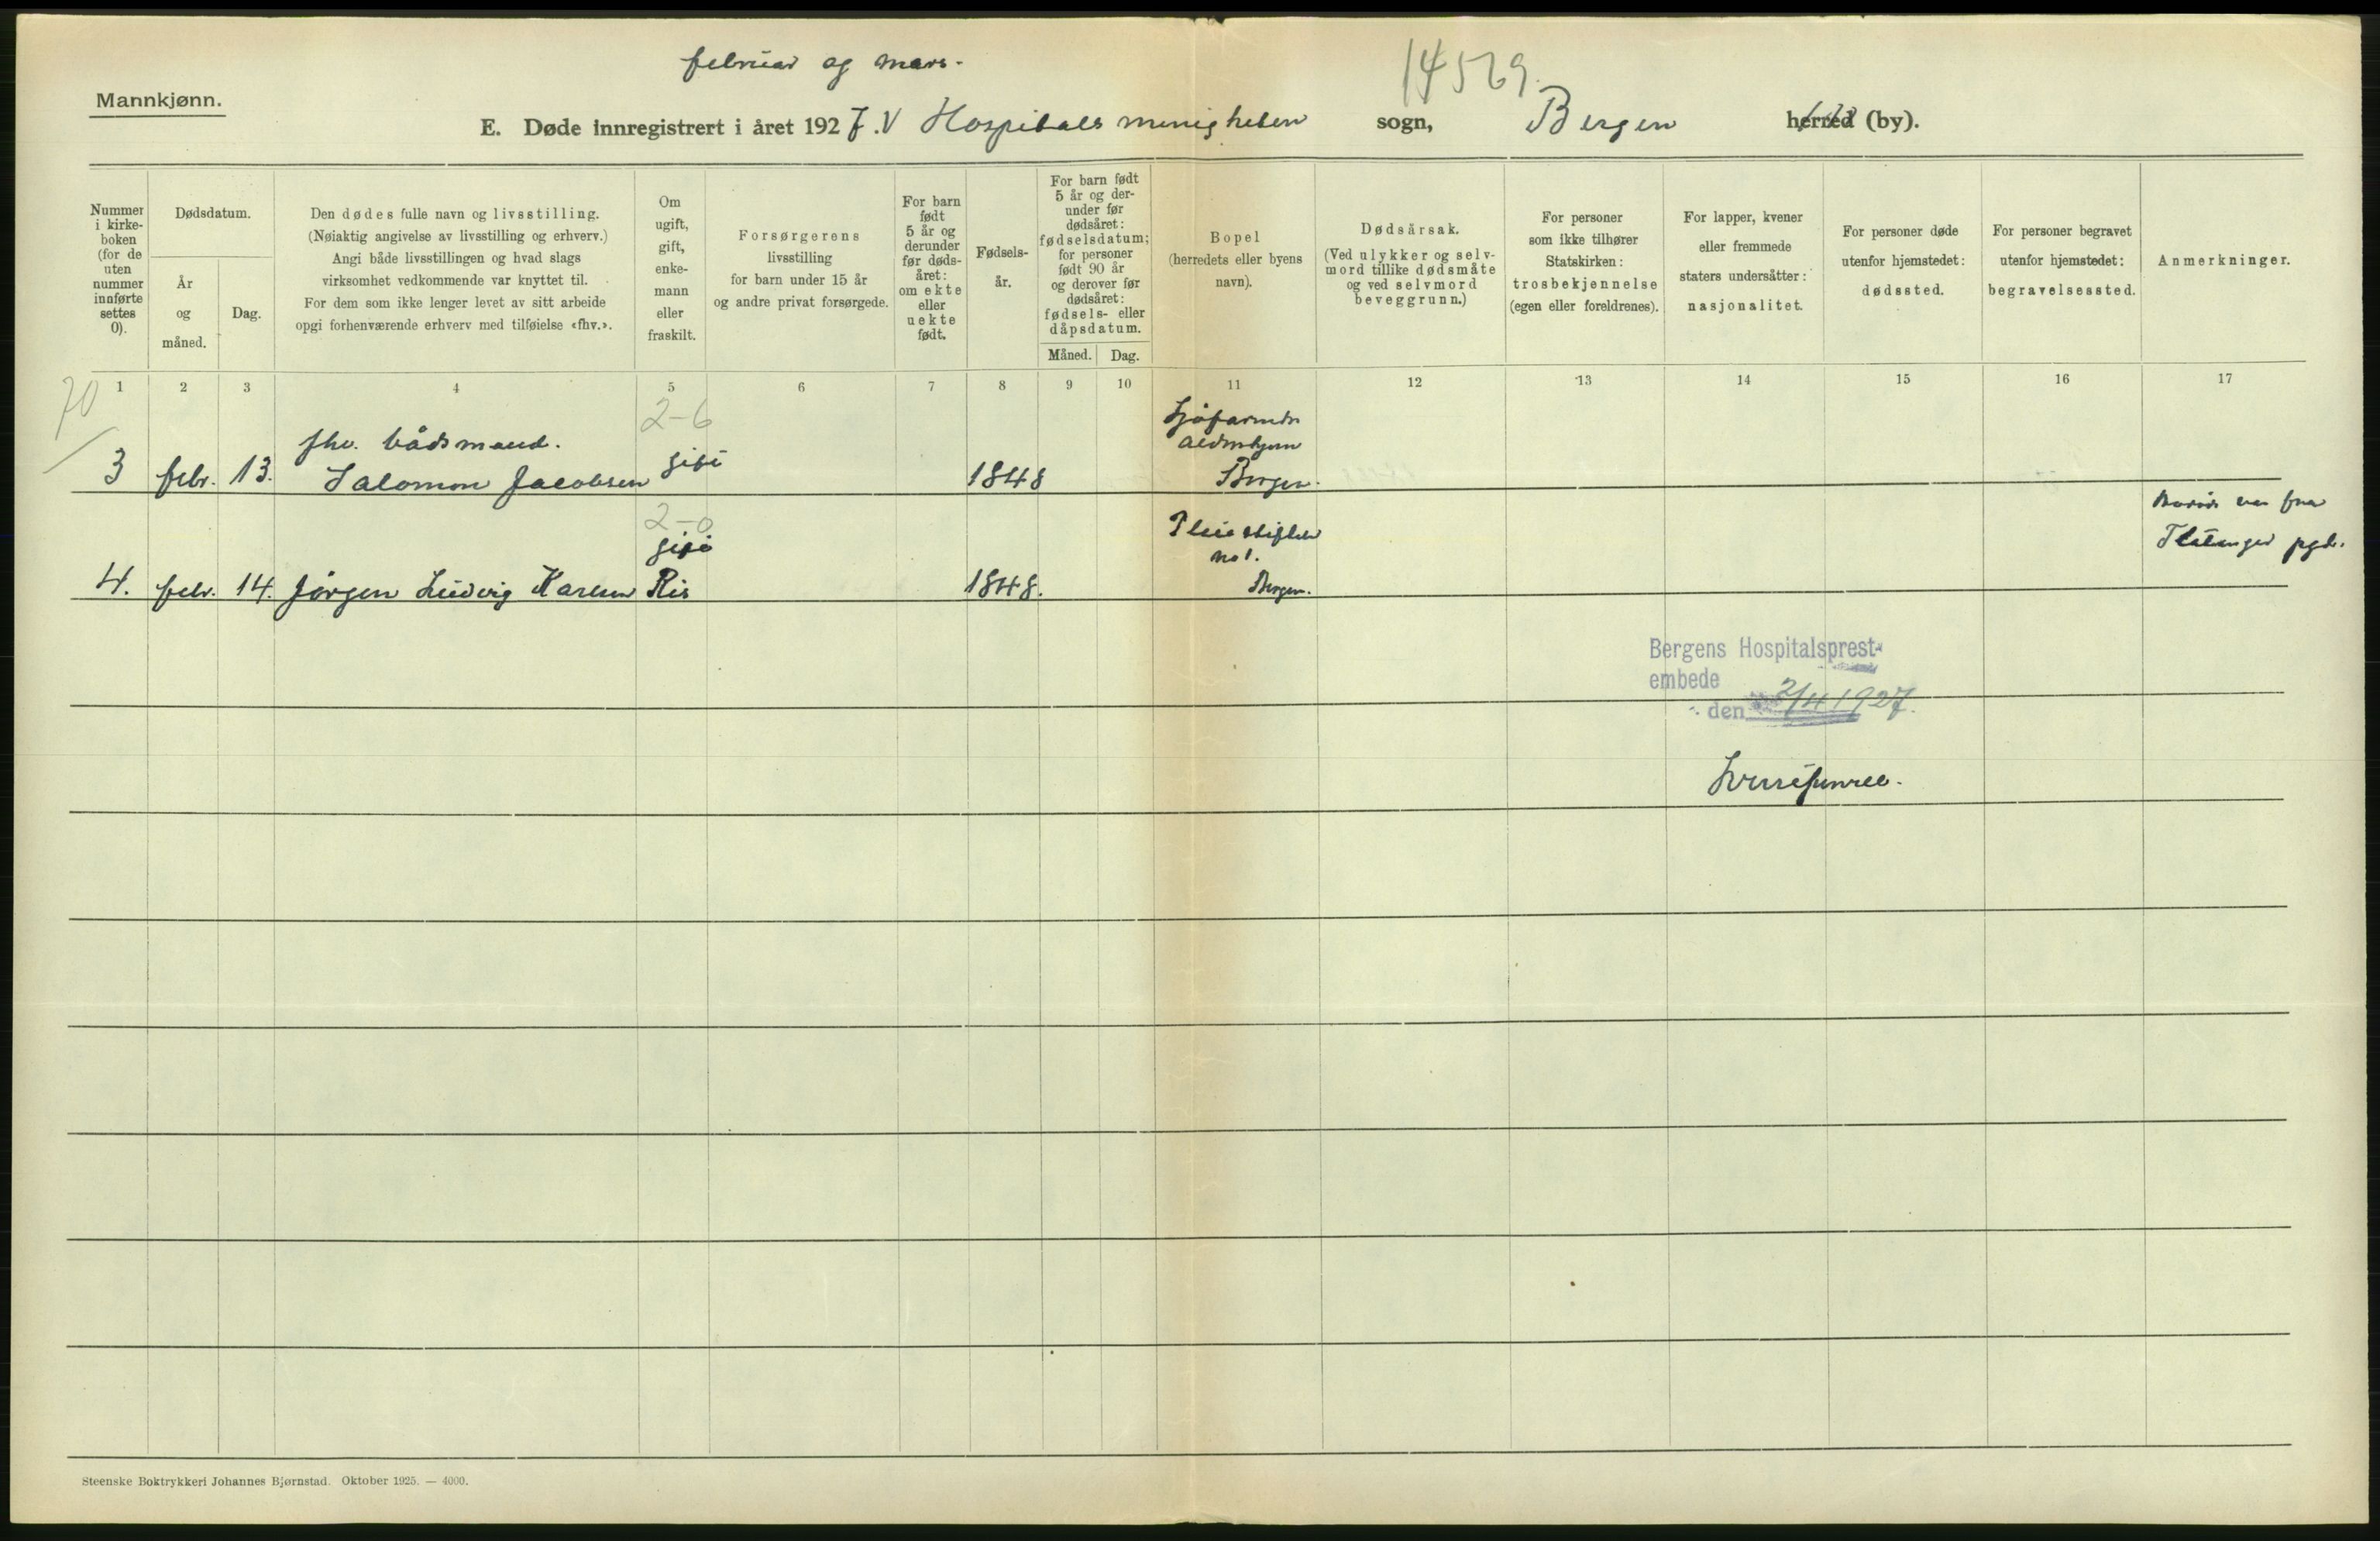 februar og mars.
14569.
Mannkjønn.
E. Døde innregistrert i året 1927. V Hospitalsmenigheten sogn, Bergen herred (by).
Nummer i kirkeboken (for de uten nummer innførte settes 0).
Dødsdatum.
År og måned.
Dag.
Den dødes fulle navn og livsstilling.
(Nøiaktig angivelse av livsstilling og erhverv.)
Angi både livsstillingen og hvad slags
virksomhet vedkommende var knyttet til.
For dem som ikke lenger levet av sitt arbeide
opgi forhenværende erhverv med tilføielse «fhv.».
Om ugift, gift, enkemann eller fraskilt.
Forsørgerens
livsstilling
for barn under 15 år
og andre privat forsørgede.
For barn født 5 år og derunder før dødsåret: om ekte eller uekte født.
Fødselsår.
For barn født 5 år og derunder før dødsåret: fødselsdatum; for personer født 90 år og derover før dødsåret: fødsels- eller dåpsdatum.
Måned.
Dag.
Bopel
(herredets eller byens
navn).
Dødsårsak.
(Ved ulykker og selvmord tillike dødsmåte og ved selvmord beveggrunn.)
For personer
som ikke tilhører
Statskirken:
trosbekjennelse
(egen eller foreldrenes).
For lapper, kvener
eller fremmede
staters undersåtter:
nasjonalitet.
For personer døde
utenfor hjemstedet:
dødssted.
For personer begravet
utenfor hjemstedet:
begravelsessted.
Anmerkninger.
1 2 3 4 5 6 7 8 9 10 11 12 13 14 15 16 17
70
2-6
fhv. bådsmand.
3 febr. 13. Salomon Jacobsen gift 1848 Bergen.
2-0
gift
Pleiestiftelsen
no 1.
4. febr. 14. Jørgen Ludvig Karlsen Ris 1848. Bergen.
var fra
Flatanger pgd.
Bergens Hospitalsprest-
embede
den 2/4 1927.
Steenske Boktrykkeri Johannes Bjørnstad. Oktober 1925. — 4000.